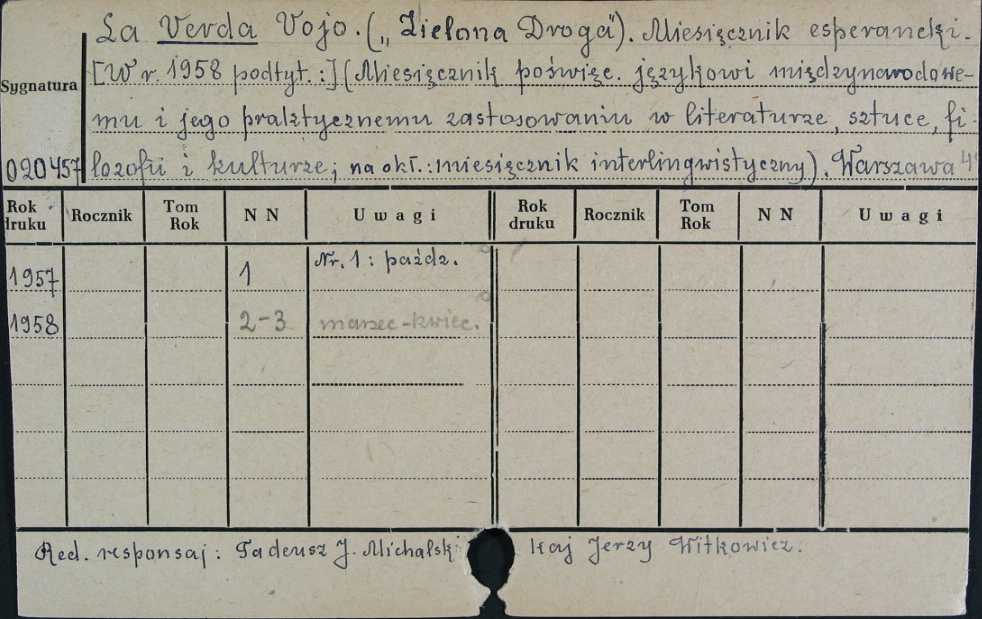 La Verda Vojo. („Zielona Droga”). Miesięcznik esperancki.
[W r. 1958 podtyt.:] (Miesięcznik poświęc. językowi międzynarodowe-
Sygnatura
mu i jego praktycznemu zastosowaniu w literaturze, sztuce, fi-
020457 lozofii i kulturze; na okł.: miesięcznik interlingwistyczny). Warszawa 4°
Rok druku Rocznik Tom Rok NN Uwagi Rok druku Rocznik Tom Rok NN Uwagi
1957 1 Nr. 1: paźdz.
1958 2-3 marzec-kwiec.
Red. responsaj: Tadeusz J. Michalski kaj Jerzy Witkowicz.